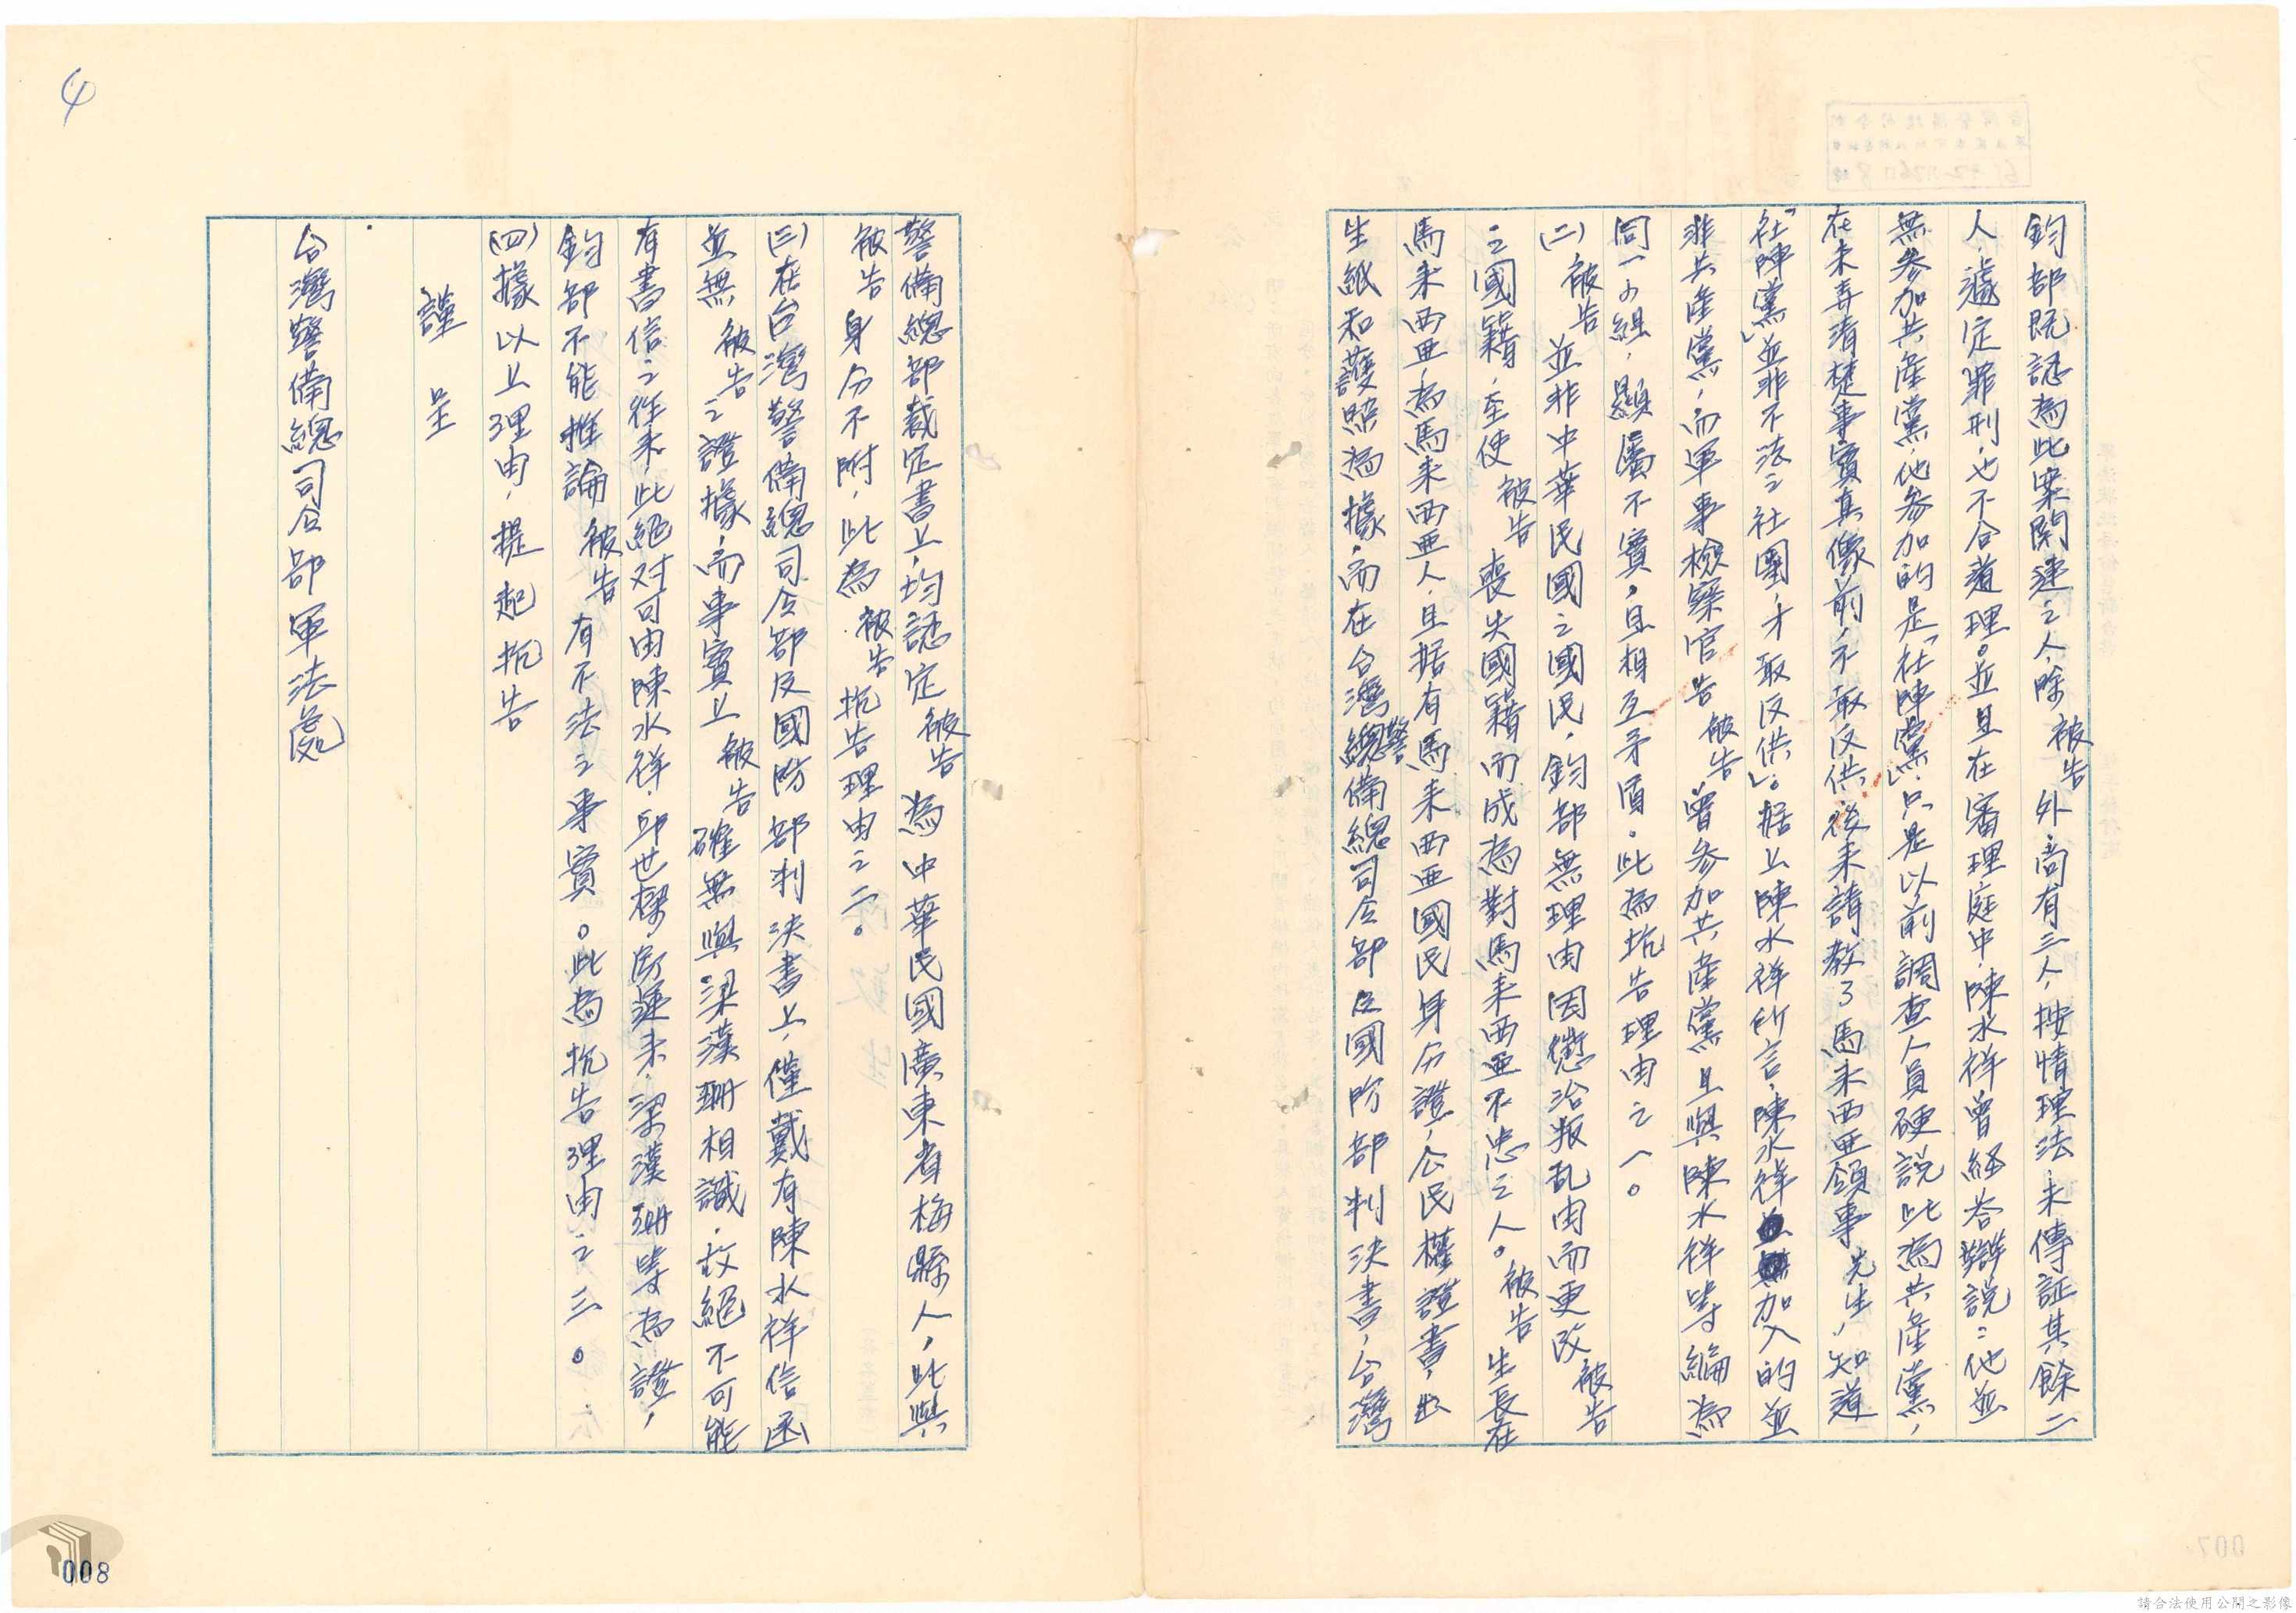 鈞部既認為此案関連之人，除被告外，尚有三人，按情理法，未傳証其餘二
人，遽定罪刑，也不合道理。並且在審理庭中，陳水祥曾経答辯説：他並
無參加共產黨，他參加的是「社陣黨」，只是以前調查人員硬説此為共產黨，
在未弄清楚事實真像前，不敢反供，後来請教了馬来西亜領事先生，知道
「社陣黨」並非不法之社團，才敢反供」。据上陳水祥所言，陳水祥加入的並
非共產黨，而軍事檢察官告被告曾參加共產黨且與陳水祥等編為
同一小組，顯屬不實，且相互矛盾。此為抗告理由之一。
(二)被告並非中華民國之國民，鈞部無理由因懲治叛乱由而更改被告
之國籍，至使被告喪失國籍而成為對馬来西亜不忠之人。被告生長在
馬来西亜，為馬来西亜人，且据有馬来西亜國民身分證，公民權證書，出
生紙和護照為據，而在台灣警備總司令部及國防部判決書，台灣
警備總部裁定書上，均認定被告為中華民國廣東省梅縣人，此與
被告身分不附，此為被告抗告理由之二。
(三)在台灣警備總司令部及國防部判決書上，僅戴有陳水祥信函
並無被告之證據，而事實上被告確無與梁漢珊相識，故絕不可能
有書信之往来，此絕对可由陳水祥，邱世樑，房延来，梁漢珊等為證，
鈞部不能推論被告有不法之事實。此為抗告理由之三。
(四)據以上理由，提起抗告
謹呈
台灣警備總司令部軍法處
4
008
007
請合法使用公開之影像